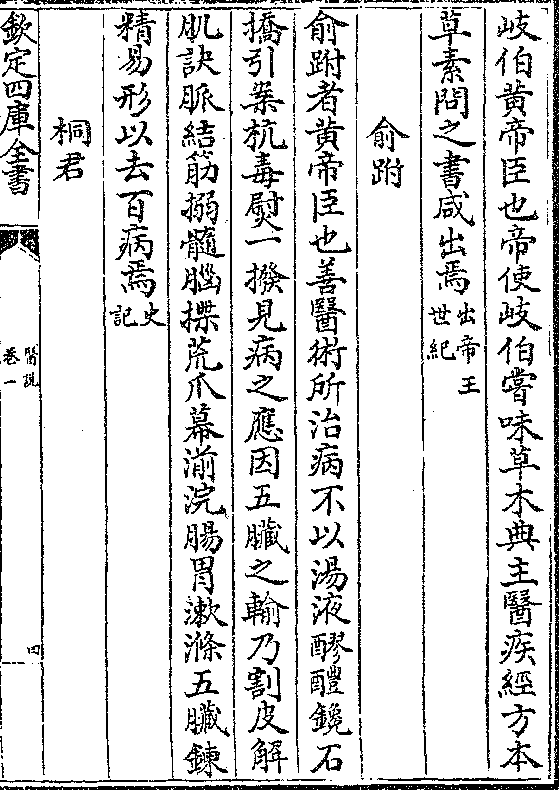 岐伯黄帝臣也帝使岐伯嘗味草木典主醫疾經方本
草素問之書咸出焉出帝王世紀
俞跗
俞跗者黄帝臣也善醫術所治病不以湯液醪醴鑱石
撟引案杭毒熨一撥見病之應因五臟之輸乃割皮解
肌訣脈結筋搦髓腦揲荒爪幕湔浣腸胃漱滌五臟鍊
精易形以去百病焉史記
桐君
欽定四庫全書
醫説
卷一
四